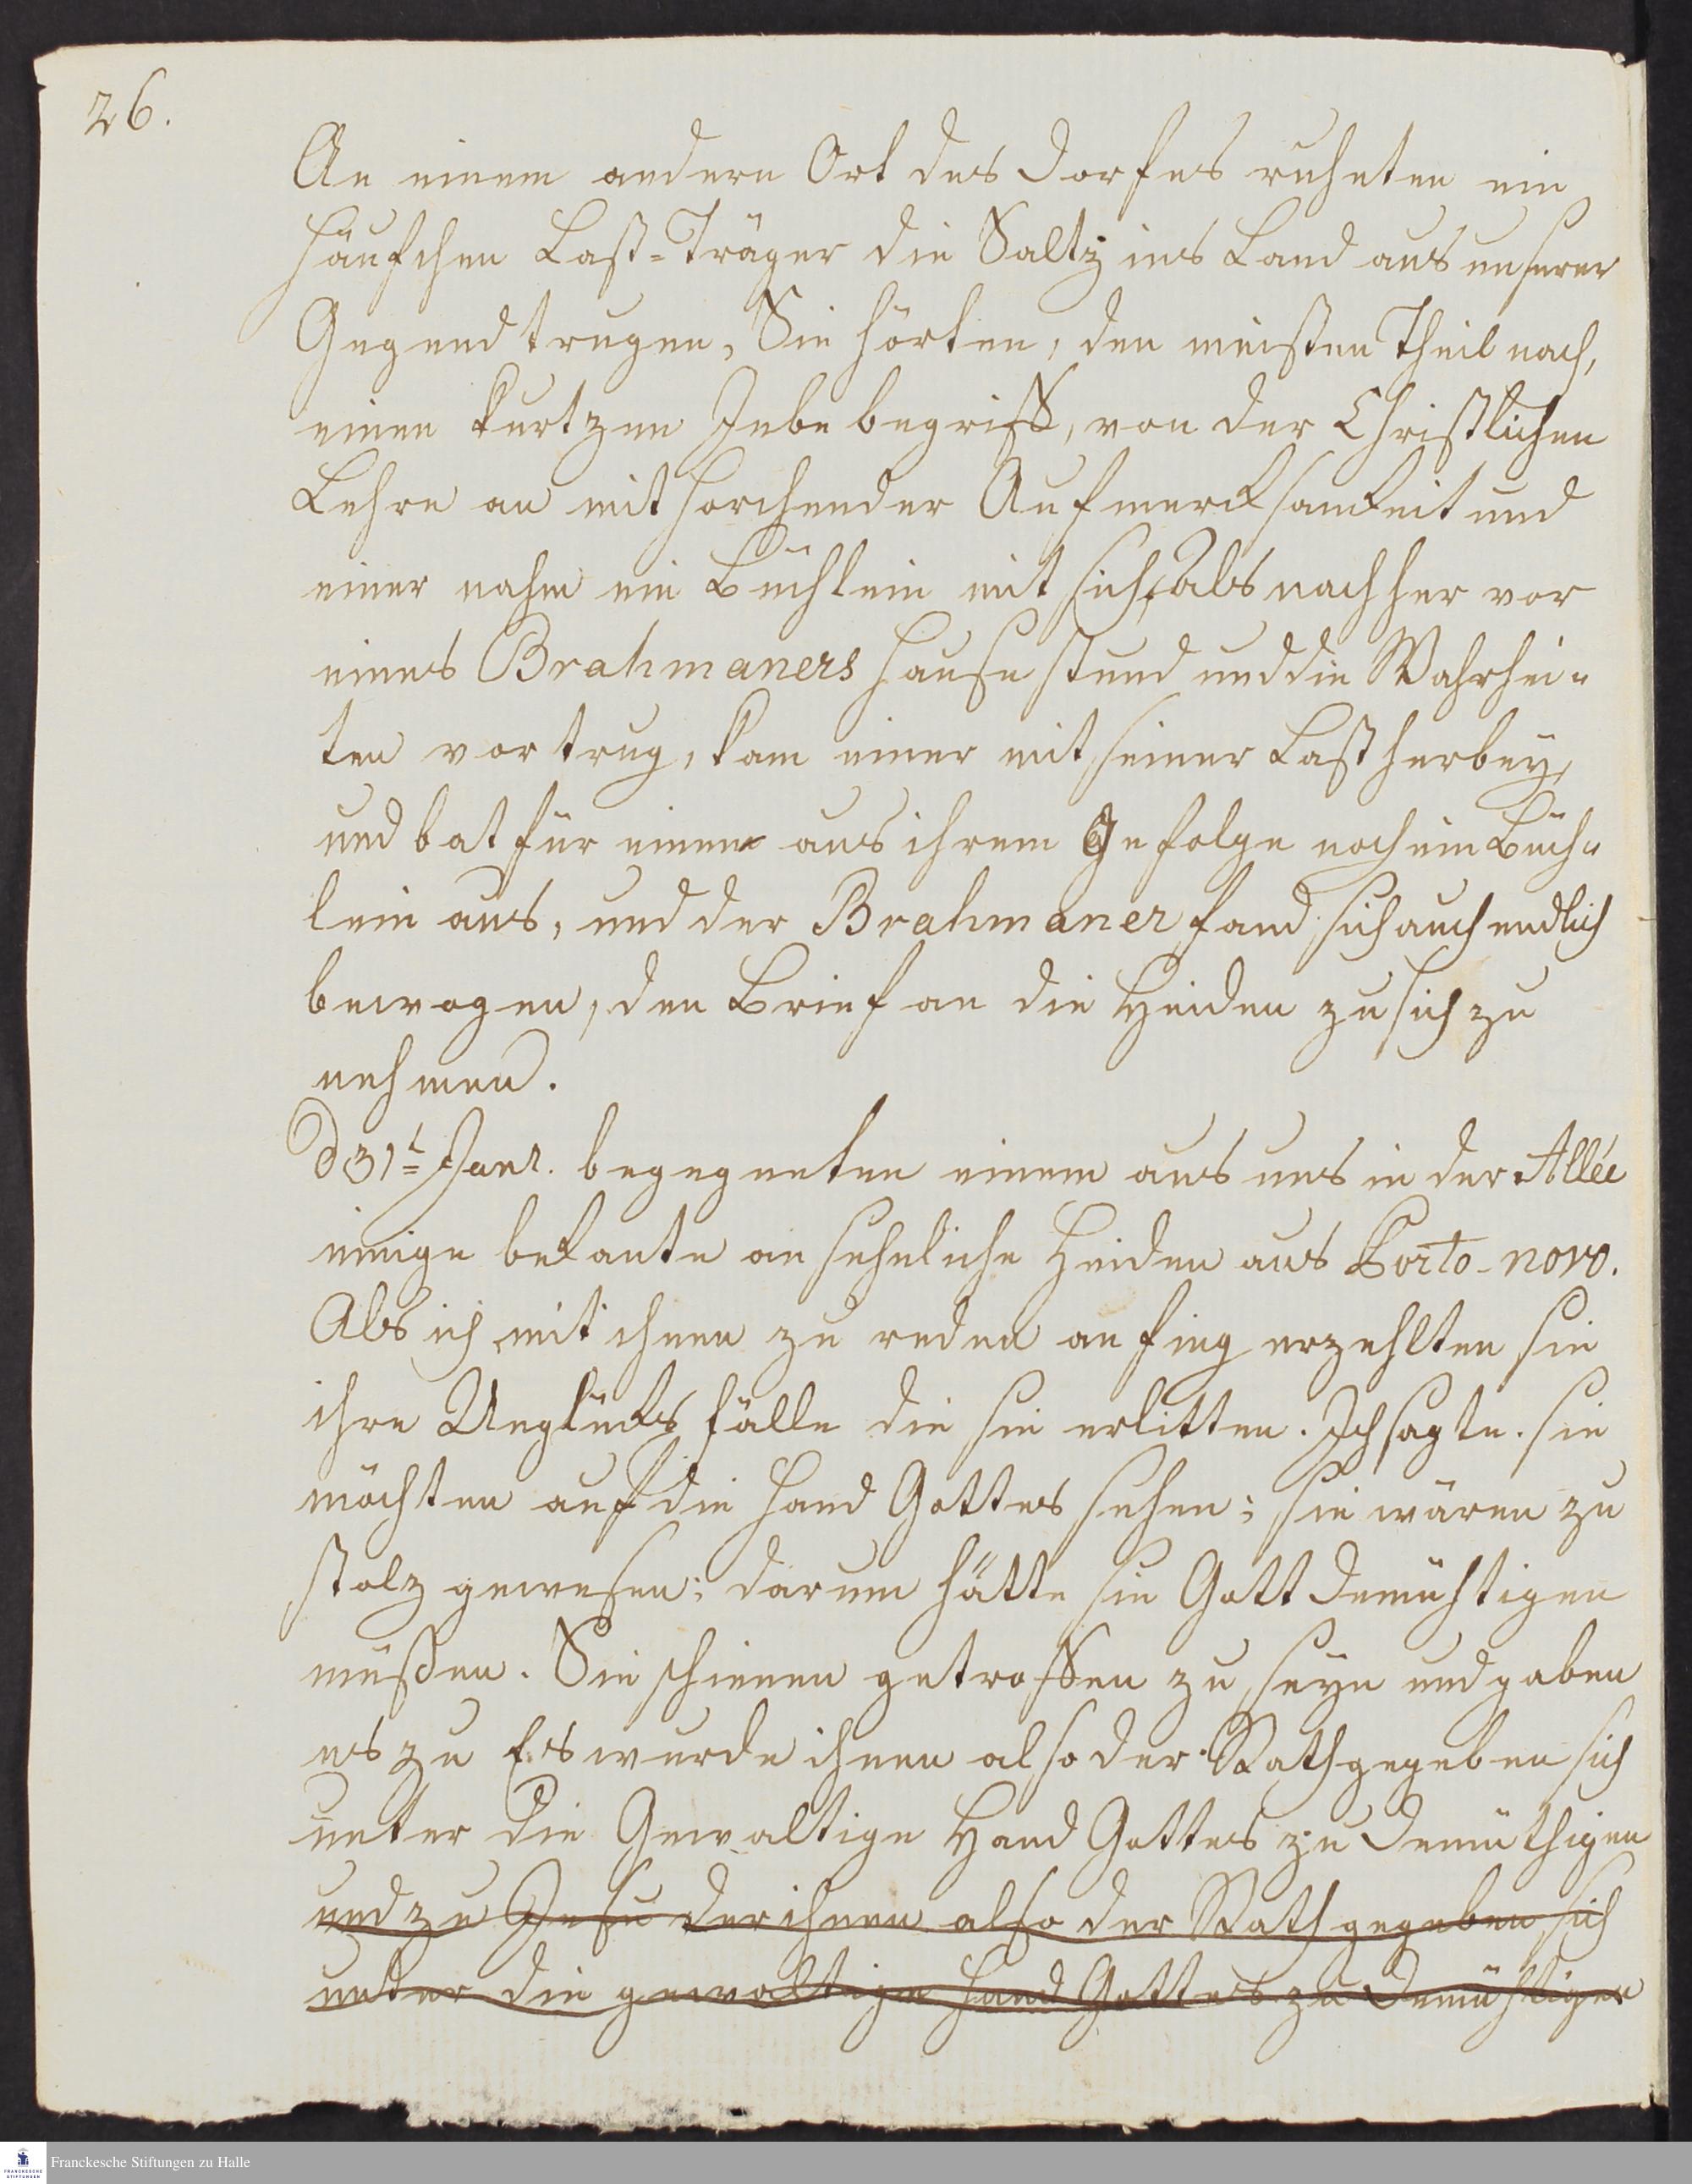 26.
An einem andern Ort des Dorfes ruheten ein
Häufchen Last-Träger die Saltz ins Land aus unserer
Gegend trugen, Sie hörten, den meisten Theil nach,
einen kurtzen Inbe begriff, von der Christlichen
Lehre an mit horchender Aufmercksamkeit und
einer nahm ein Büchlein mit sich, als nachher vor
eines Brahmaners Hause stund und die Wahrhei-
ten vortrug, kam einer mit seiner Last herbey,
und bat für einen aus ihrem Gefolge noch ein Büch-
lein aus, und der Brahmaner fand sich auch endlich
bewogen, den Brief an die Heiden zu sich zu
nehmen.
d 31t Janr. begegneten einem aus uns in der Allée
einige bekante ansehnliche Heiden aus Porto-novo.
Als ich mit ihnen zu reden anfing erzehlten sie
ihre Unglücksfälle die sie erlitten. Ich sagte. sie
möchten auf die Hand Gottes sehen; sie wären zu
stolz gewesen; darum hätte sie Gott demühtigen
müßen. Sie schienen getroffen zu seyn und gaben
es zu Es wurde ihnen also der Rath gegeben sich
unter die Gewaltige Hand Gottes zu demüthigen
und zu Jesu der ihnen also der Rath gegeben sich
unter die gewaltige Hand Gottes zu demühtigen
Franckesche Stiftungen zu Halle
FRANCKESCHE
STIFTUNGEN